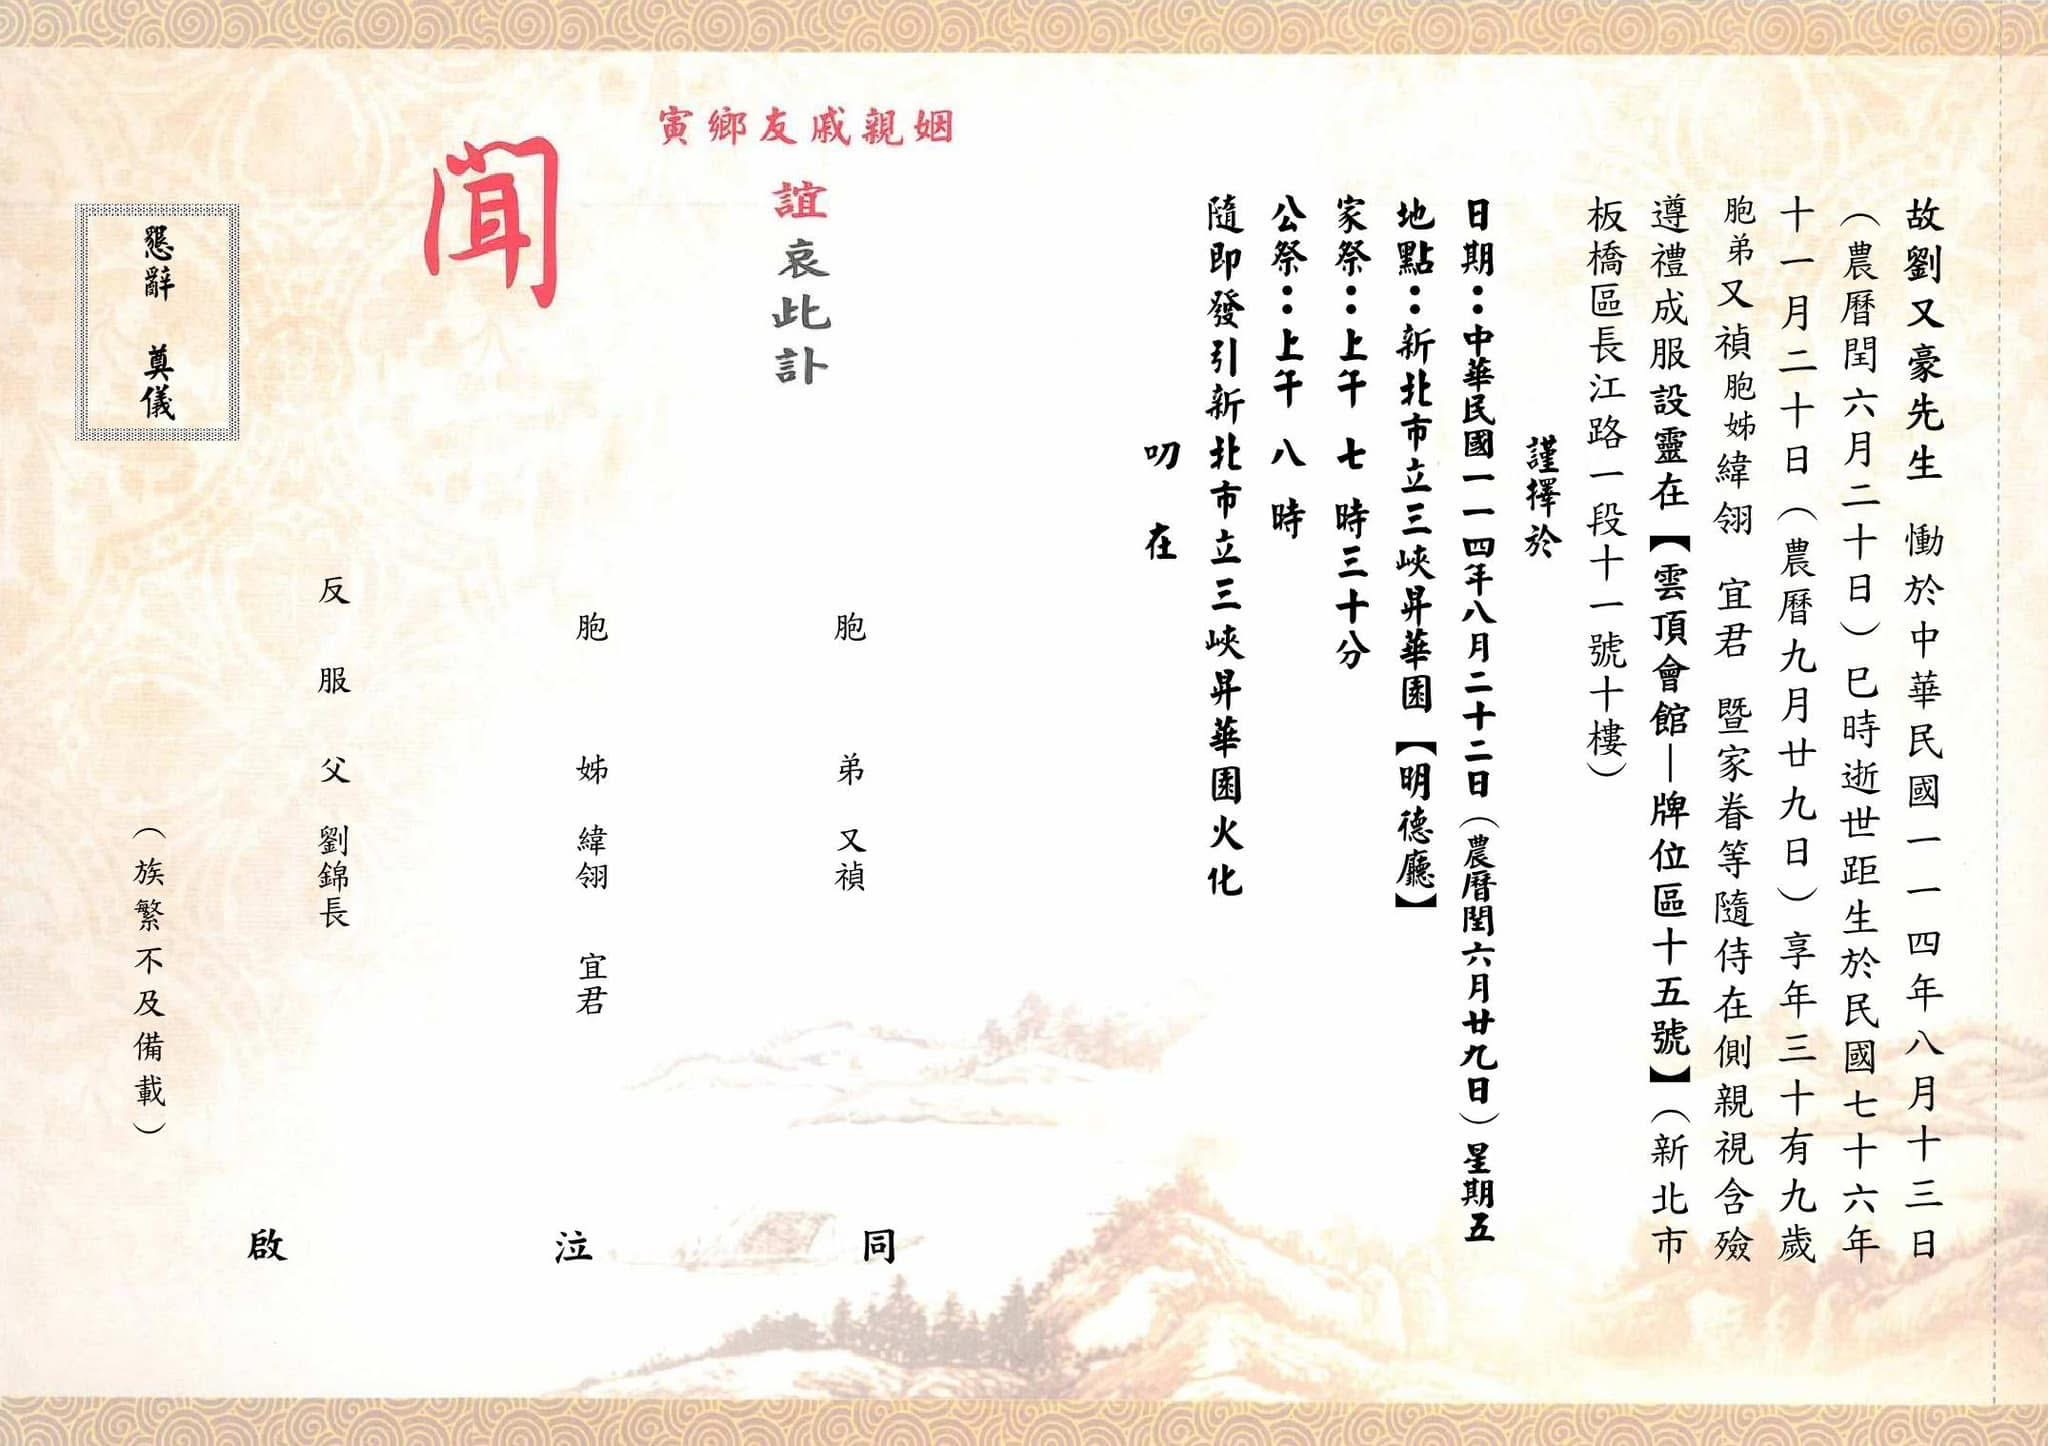 故劉又豪先生　慟於中華民國一一四年八月十三日
（農曆閏六月二十日）巳時逝世距生於民國七十六年
十一月二十日（農曆九月廿九日）享年三十有九歲
胞弟又禎胞姊緯翎　宜君　暨家眷等隨侍在側親視含殮
遵禮成服設靈在【雲頂會館—牌位區十五號】（新北市
板橋區長江路一段十一號十樓）
謹擇於
日期：中華民國一一四年八月二十二日（農曆閏六月廿九日）星期五
地點：新北市立三峽昇華園【明德廳】
家祭：上午 七 時三十分
公祭：上午 八 時
隨即發引新北市立三峽昇華園火化
叨　在
姻親戚友鄉寅
誼哀此訃
聞
胞　弟　又禎
胞　姊　緯翎　宜君
反服父　劉錦長
同　泣　啟
（族繁不及備載）
懇辭　奠儀